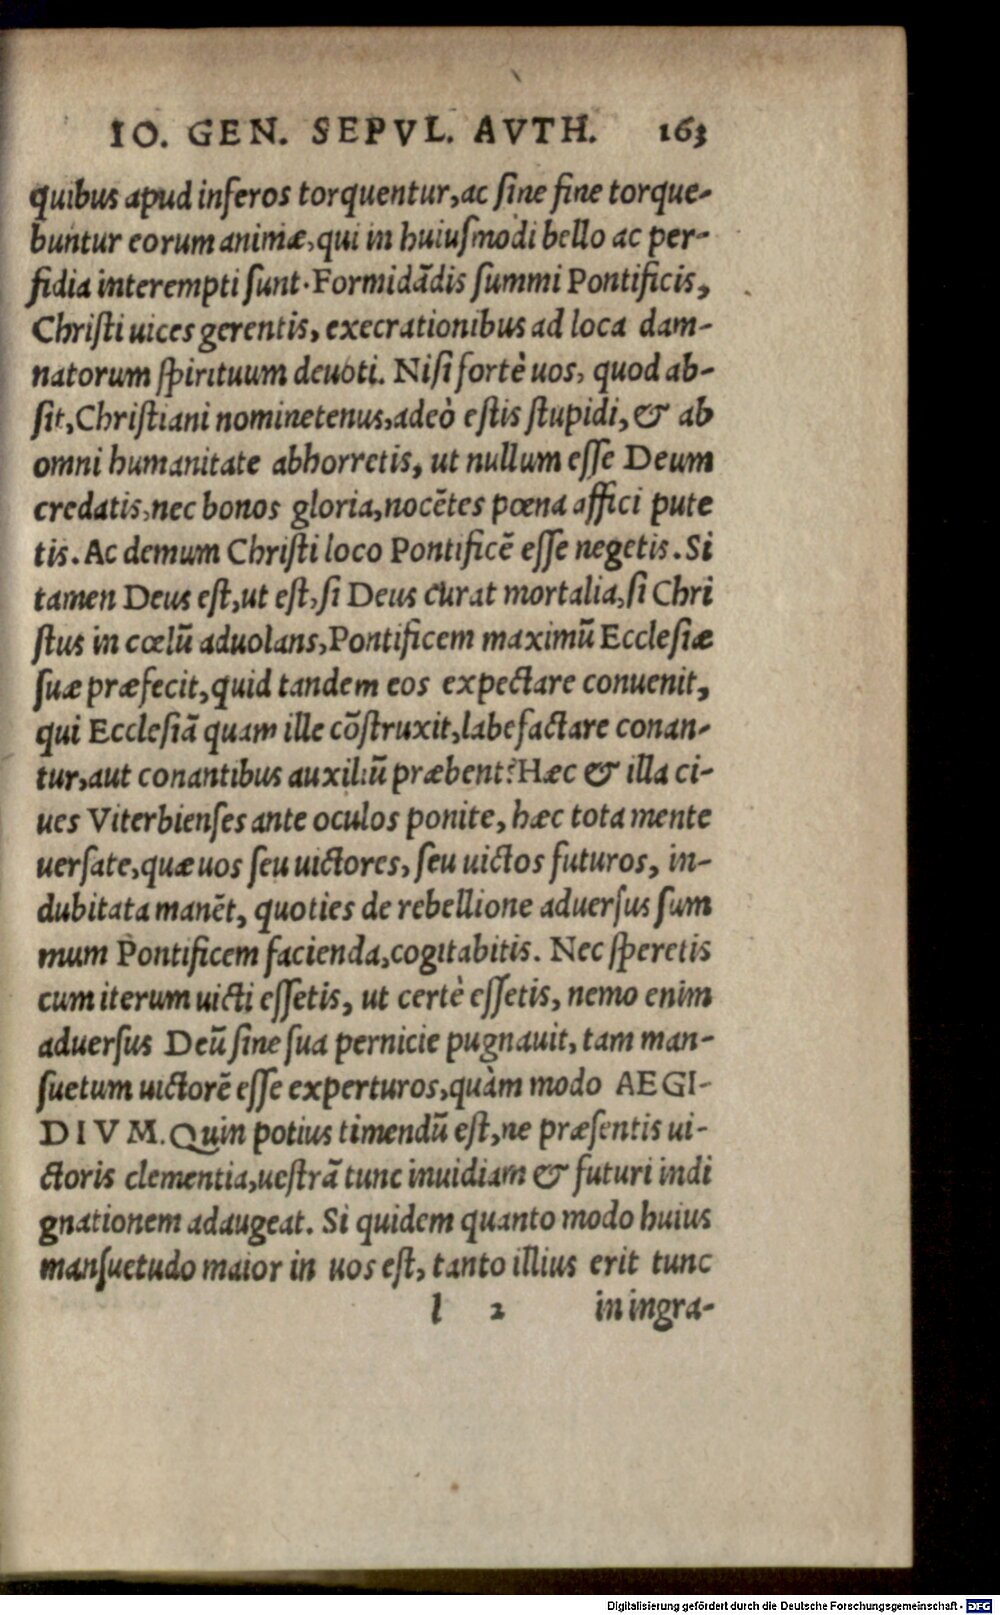 IO. GEN. SEPVL. AVTH. 163
quibus apud inferos torquentur, ac sine fine torque-
buntur eorum animæ, qui in huiusmodi bello ac per-
fidia interempti sunt. Formidādis summi Pontificis,
Christi uices gerentis, execrationibus ad loca dam-
natorum spirituum deuoti. Nisi fortè uos, quod ab-
sit, Christiani nominetenus, adeò estis stupidi, & ab
omni humanitate abhorretis, ut nullum esse Deum
credatis, nec bonos gloria, nocētes pœna affici pute
tis. Ac demum Christi loco Pontificē esse negetis. Si
tamen Deus est, ut est, si Deus curat mortalia, si Chri
stus in cœlū aduolans, Pontificem maximū Ecclesiæ
suæ præfecit, quid tandem eos expectare conuenit,
qui Ecclesiā quam ille cōstruxit, labefactare conan-
tur, aut conantibus auxiliū præbent? Hæc & illa ci-
ues Viterbienses ante oculos ponite, hæc tota mente
uersate, quæ uos seu uictores, seu uictos futuros, in-
dubitata manēt, quoties de rebellione aduersus sum
mum Pontificem facienda, cogitabitis. Nec speretis
cum iterum uicti essetis, ut certè essetis, nemo enim
aduersus Deū sine sua pernicie pugnauit, tam man-
suetum uictorē esse experturos, quàm modo AEGI-
DIVM. Quin potius timendū est, ne præsentis ui-
ctoris clementia, uestrā tunc inuidiam & futuri indi
gnationem adaugeat. Si quidem quanto modo huius
mansuetudo maior in uos est, tanto illius erit tunc
l 2 in ingra-
Digitalisierung gefördert durch die Deutsche Forschungsgemeinschaft - DFG